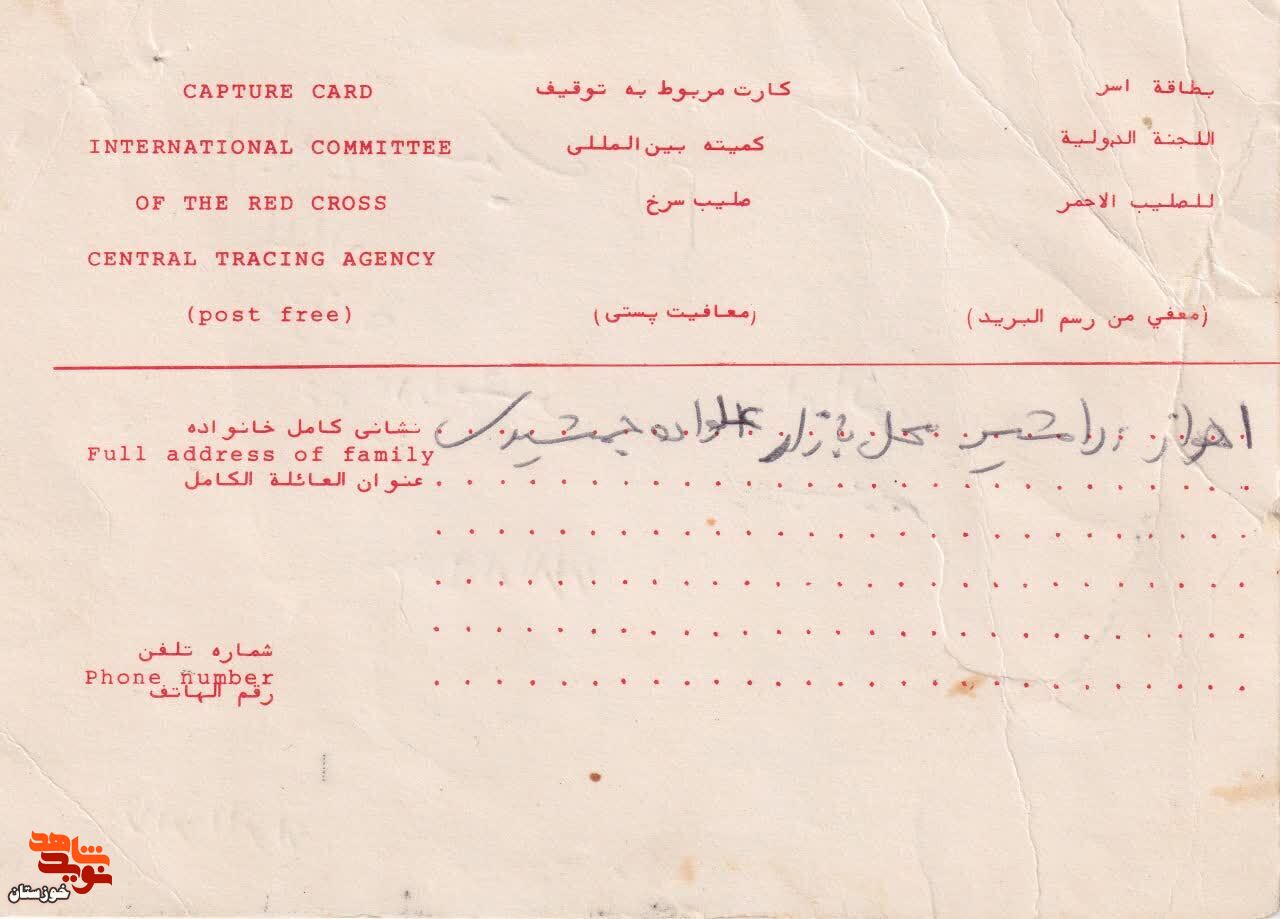 CAPTURE CARD
INTERNATIONAL COMMITTEE
OF THE RED CROSS
CENTRAL TRACING AGENCY
(post free)
کارت مربوط به توقیف
کمیته بین‌المللی
صلیب سرخ
(معافیت پستی)
بطاقة اسر
اللجنة الدولية
للصليب الاحمر
(معفي من رسم البريد)
نشانی کامل خانواده
Full address of family
عنوان العائلة الكامل
اهواز رامشیر محل بازار خانواده جمشیدی
شماره تلفن
Phone number
رقم الهاتف
نوید شاهد
خوزستان